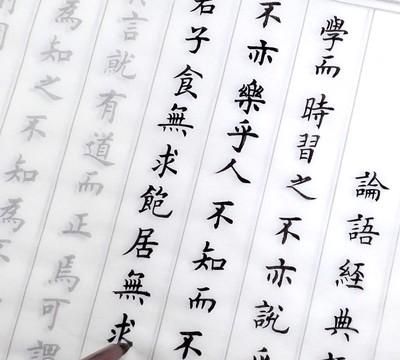 論語經典
學而時習之不亦說乎
不亦樂乎人不知而不
君子食無求飽居無求
言就有道而正焉可謂
為知之不知為不